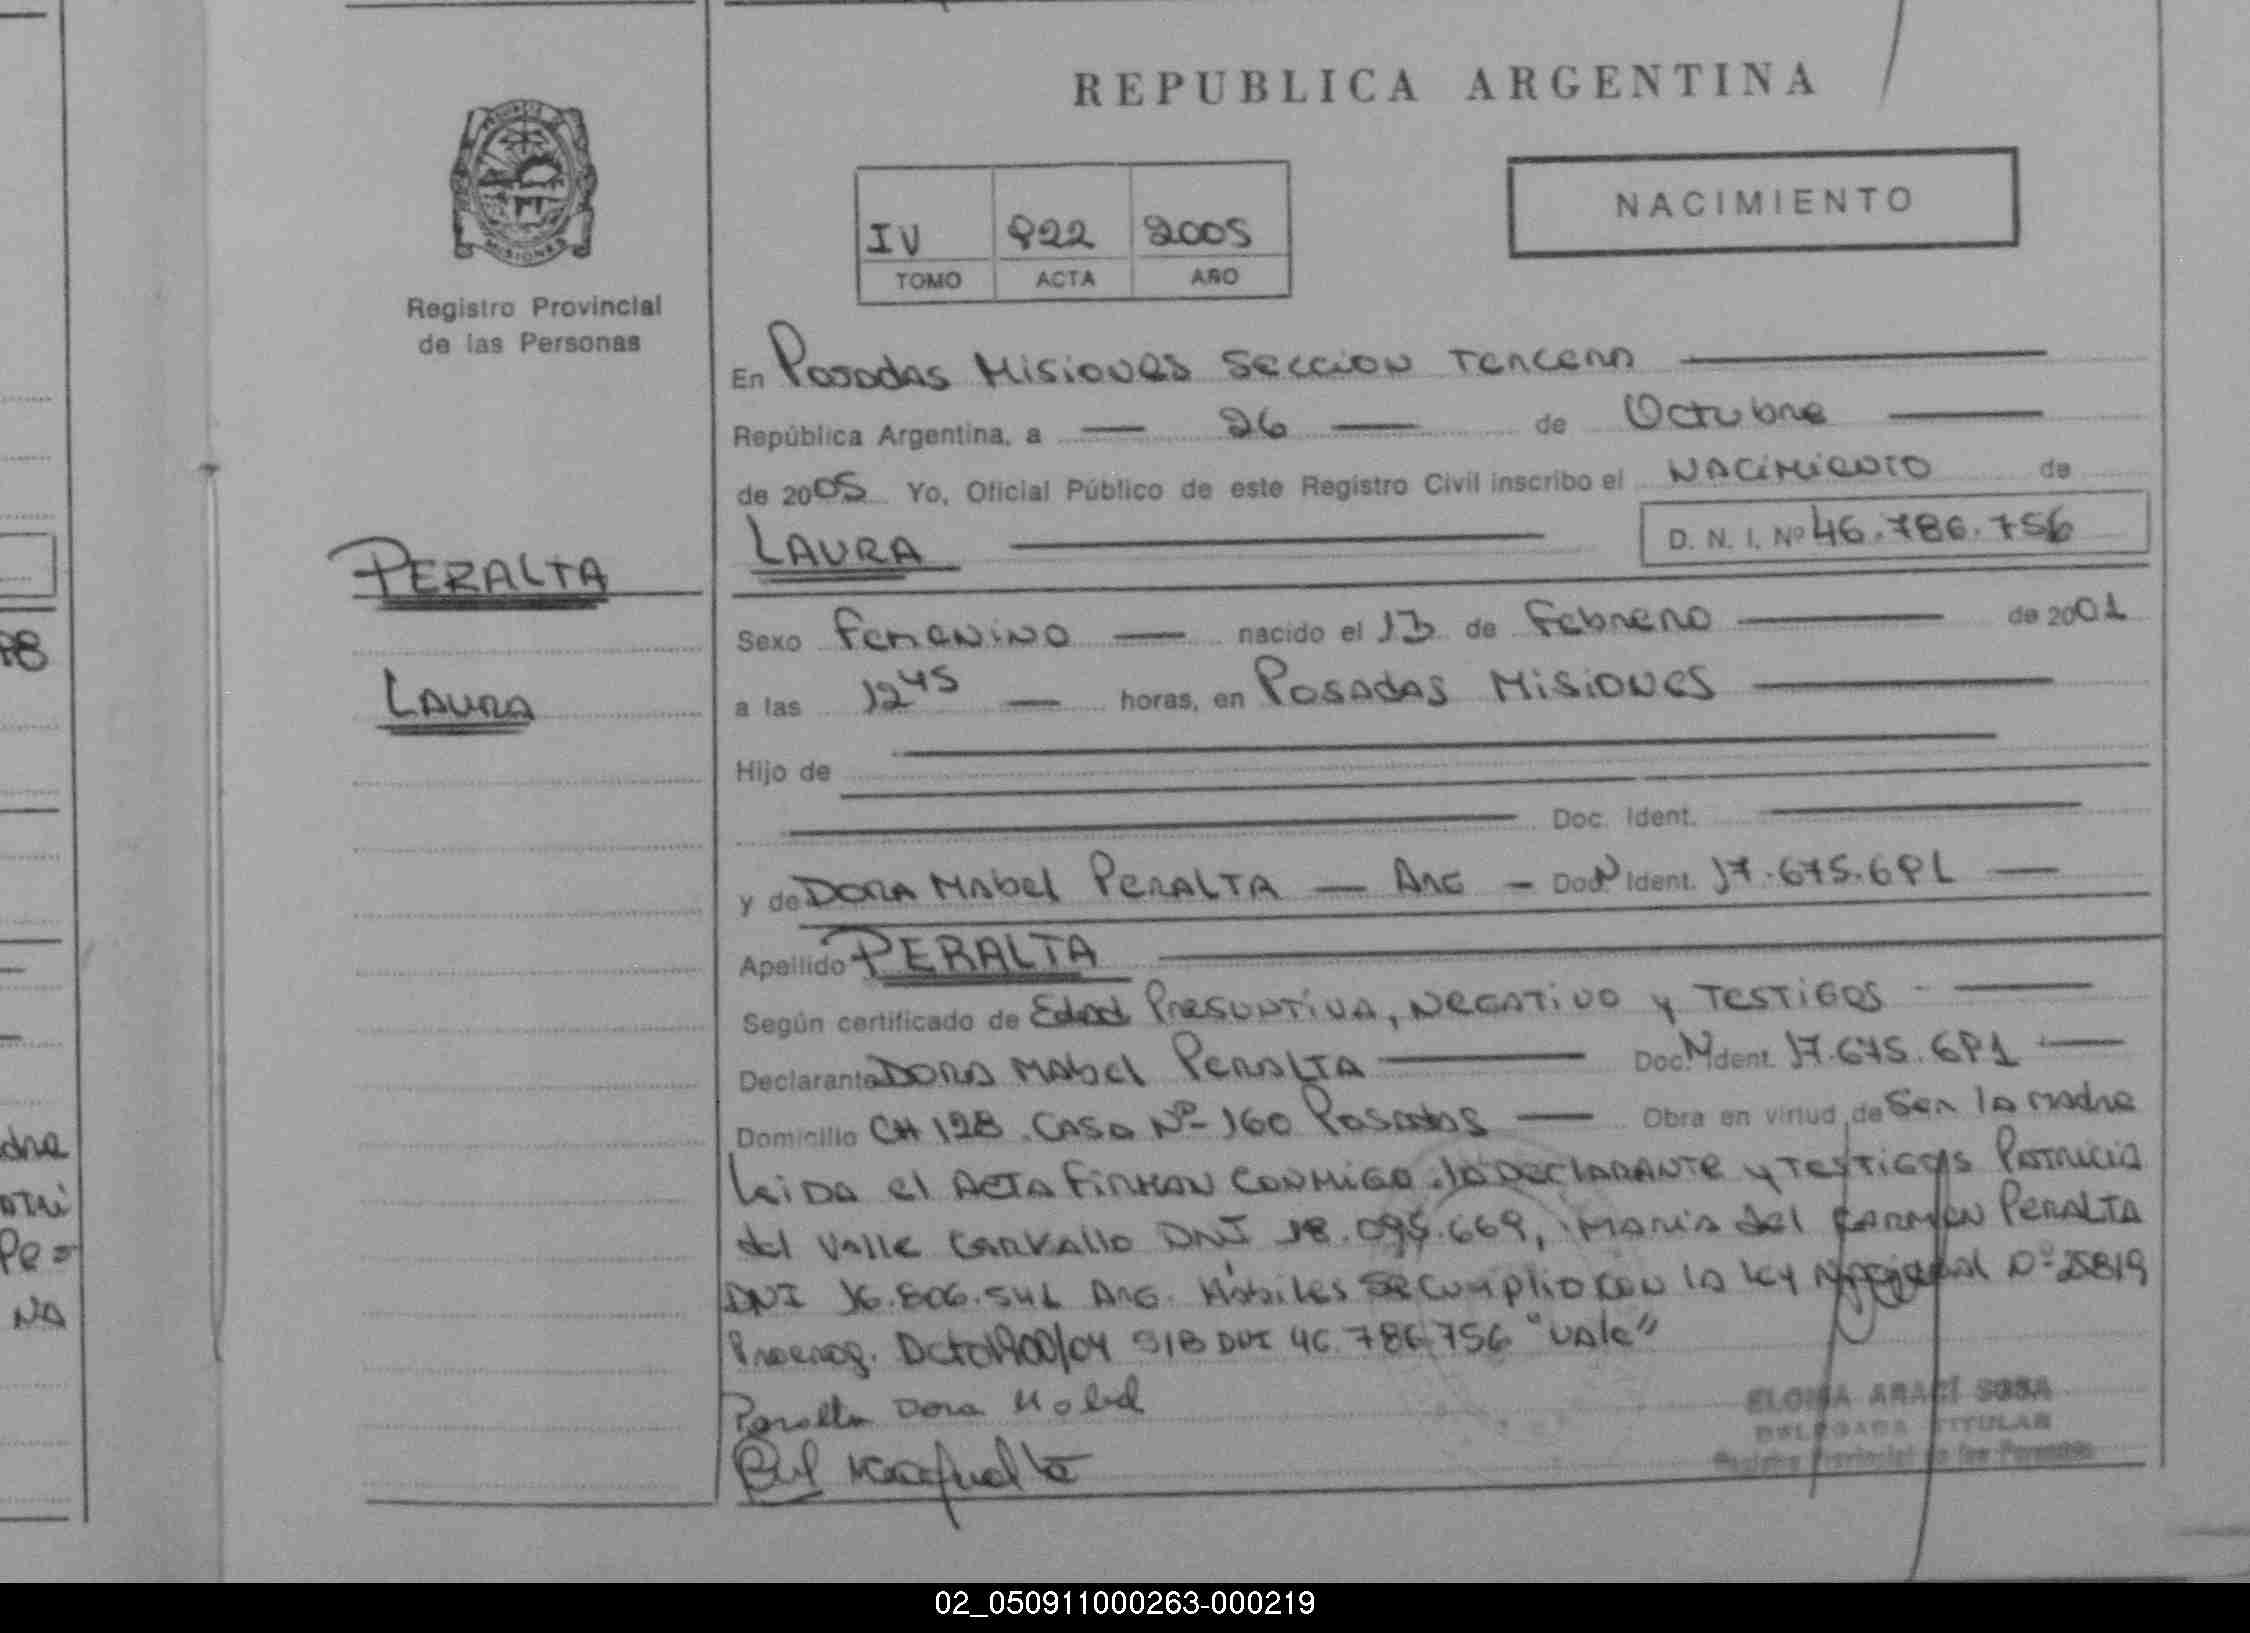 REPUBLICA ARGENTINA
NACIMIENTO
IV 922 2005
TOMO ACTA AÑO
MISIONES
Registro Provincial
de las Personas
En Posadas Misiones Seccion Tercera
República Argentina, a 26 de Octubre
de 2005 Yo, Oficial Público de este Registro Civil inscribo el Nacimiento de
LAURA D. N. I. Nº 46.786.756
PERALTA
LAURA
Sexo Femenino nacido el 13 de Febrero de 2001
a las 12 45 horas, en Posadas Misiones
Hijo de
Doc. Ident.
y de Dora Mabel Peralta Arg Doc N Ident. 17.675.691
Apellido PERALTA
Según certificado de Edad Presuntiva, Negativo y Testigos
Declarante Dora Mabel Peralta Doc. N Ident. 17.675.691
Domicilio CH 128 Casa Nº 160 Posadas Obra en virtud de Ser la madre
Leida el Acta Firman Conmigo la Declarante y Testigos Patricia
del Valle Carvallo DNI 18.095.669, Maria del Carmen Peralta
DNI 16.806.541 Arg. Hábiles Se Cumplio con la Ley Nacional Nº 25819
Prorrog. Dcto 1900/04 S/B DNI 46.786.756 "Vale"
Peralta Dora Mabel
ELOISA ARACÍ SOSA
DELEGADA TITULAR
Registro Provincial de las Personas
02_050911000263-000219